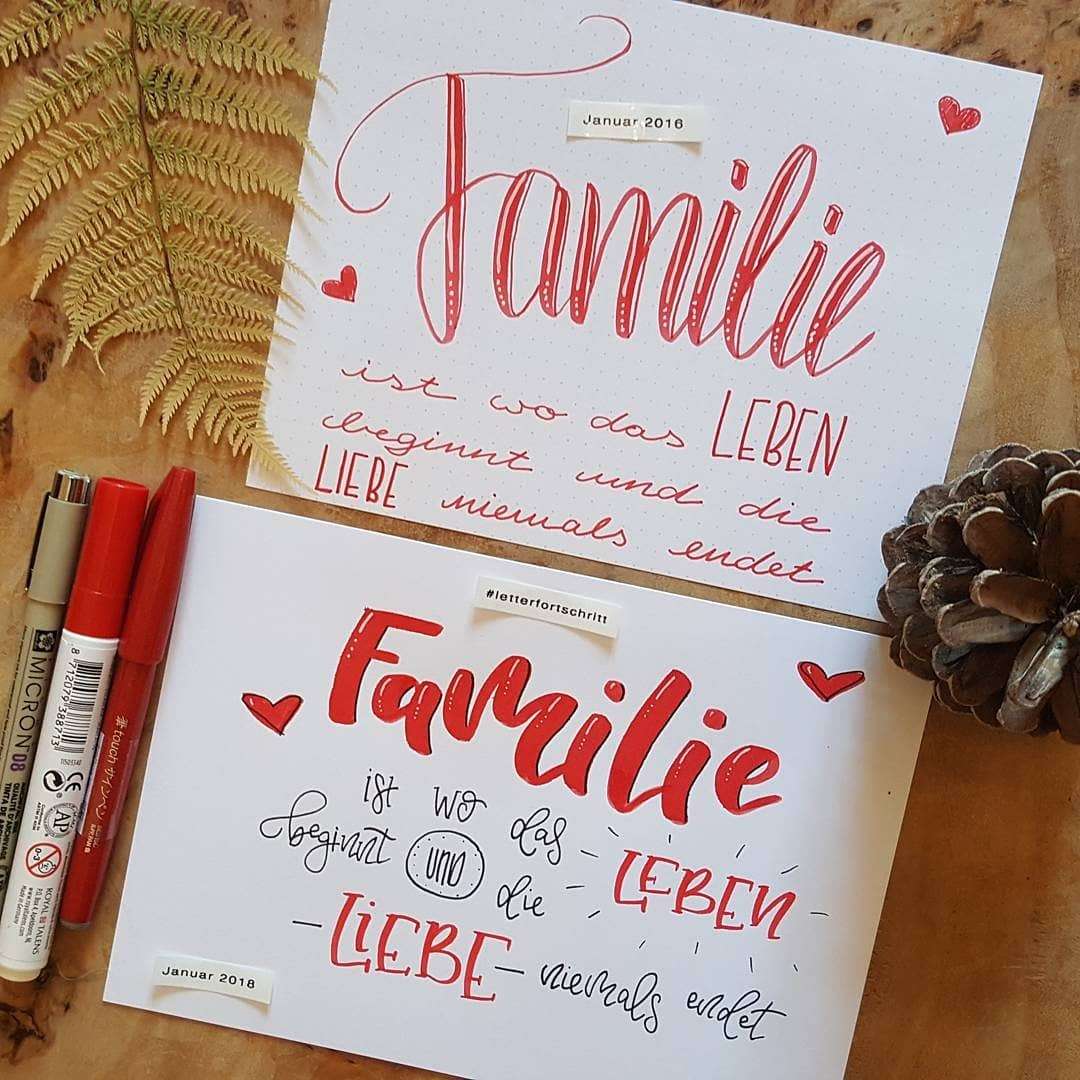 Januar 2016
Familie
ist wo das LEBEN
beginnt und die
LIEBE niemals endet
#letterfortschritt
Familie
ist wo das LEBEN
beginnt und die
LIEBE niemals endet
Januar 2018
MICRON 08
8 712079 388713
CE
AP
0-3
ROYAL TALENS
Made in Germany
touch サインペン